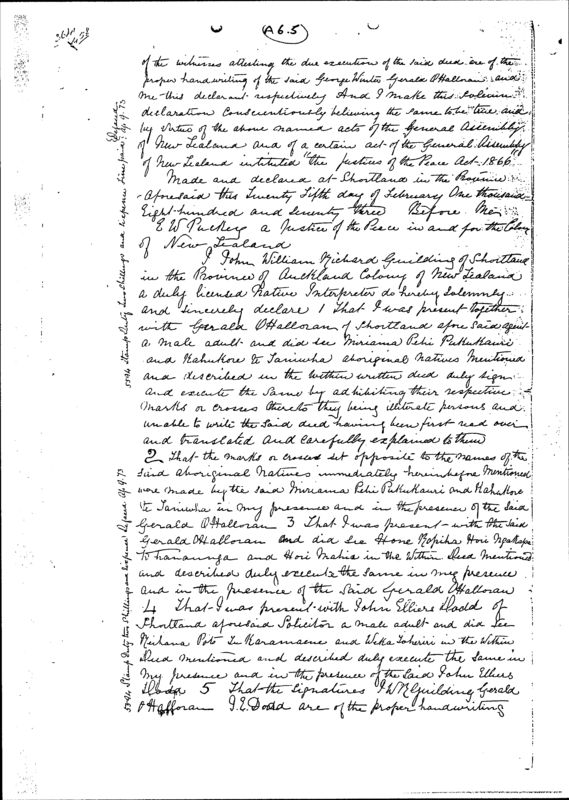 A 6.5
of the witnesses attesting the due execution of the said deed are of the
proper handwriting of the said George Winter Gerald O'Halloran and
me this declarant respectively And I make this solemn
declaration Conscientiously believing the same to be true and
by virtue of the above named acts of the General Assembly
of New Zealand and of a certain act of the General Assembly
of New Zealand intituled "the Justices of the Peace Act 1866"
Made and declared at Shortland in the Province
aforesaid this Twenty Fifth day of February One thousand
Eight hundred and Seventy three Before Me
E W Puckey a Justice of the Peace in and for the Colony
of New Zealand
I John William Richard Guilding of Shortland
in the Province of Auckland Colony of New Zealand
a duly licensed Native Interpreter do hereby Solemnly
and sincerely declare 1 That I was present together
with Gerald O'Halloran of Shortland afore said agent
a male adult and did see Miriama Pehi Pukukauri
and Kahukore Te Taniwha aboriginal natives Mentioned
and described in the within written deed duly sign
and execute the same by adhibiting their respective
marks or crosses thereto they being illiterate persons and
unable to write the said deed having been first read over
and translated and carefully explained to them
2 That the marks or crosses set opposite to the names of the
said aboriginal Natives immediately hereinbefore Mentioned
were made by the said Miriama Pehi Pukukauri and Kahukore
Te Taniwha in my presence and in the presence of the Said
Gerald O'Halloran 3 That I was present with the said
Gerald O'Halloran and did see Hone Ropiha Hori
and Hori Mahia in the Within Deed Mentioned
and described duly execute the same in my presence
and in the presence of the Said Gerald O'Halloran
4 That I was present with John Elliers Dodd of
Shortland aforesaid Solicitor a male adult and did See
Poto Te Karamaene and in the Within
Deed mentioned and described duly execute the same in
my presence and in the presence of the Said John Elliers
Dodd 5 That the Signatures J W R Guilding Gerald
O'Halloran J. E. Dodd are of the proper handwriting